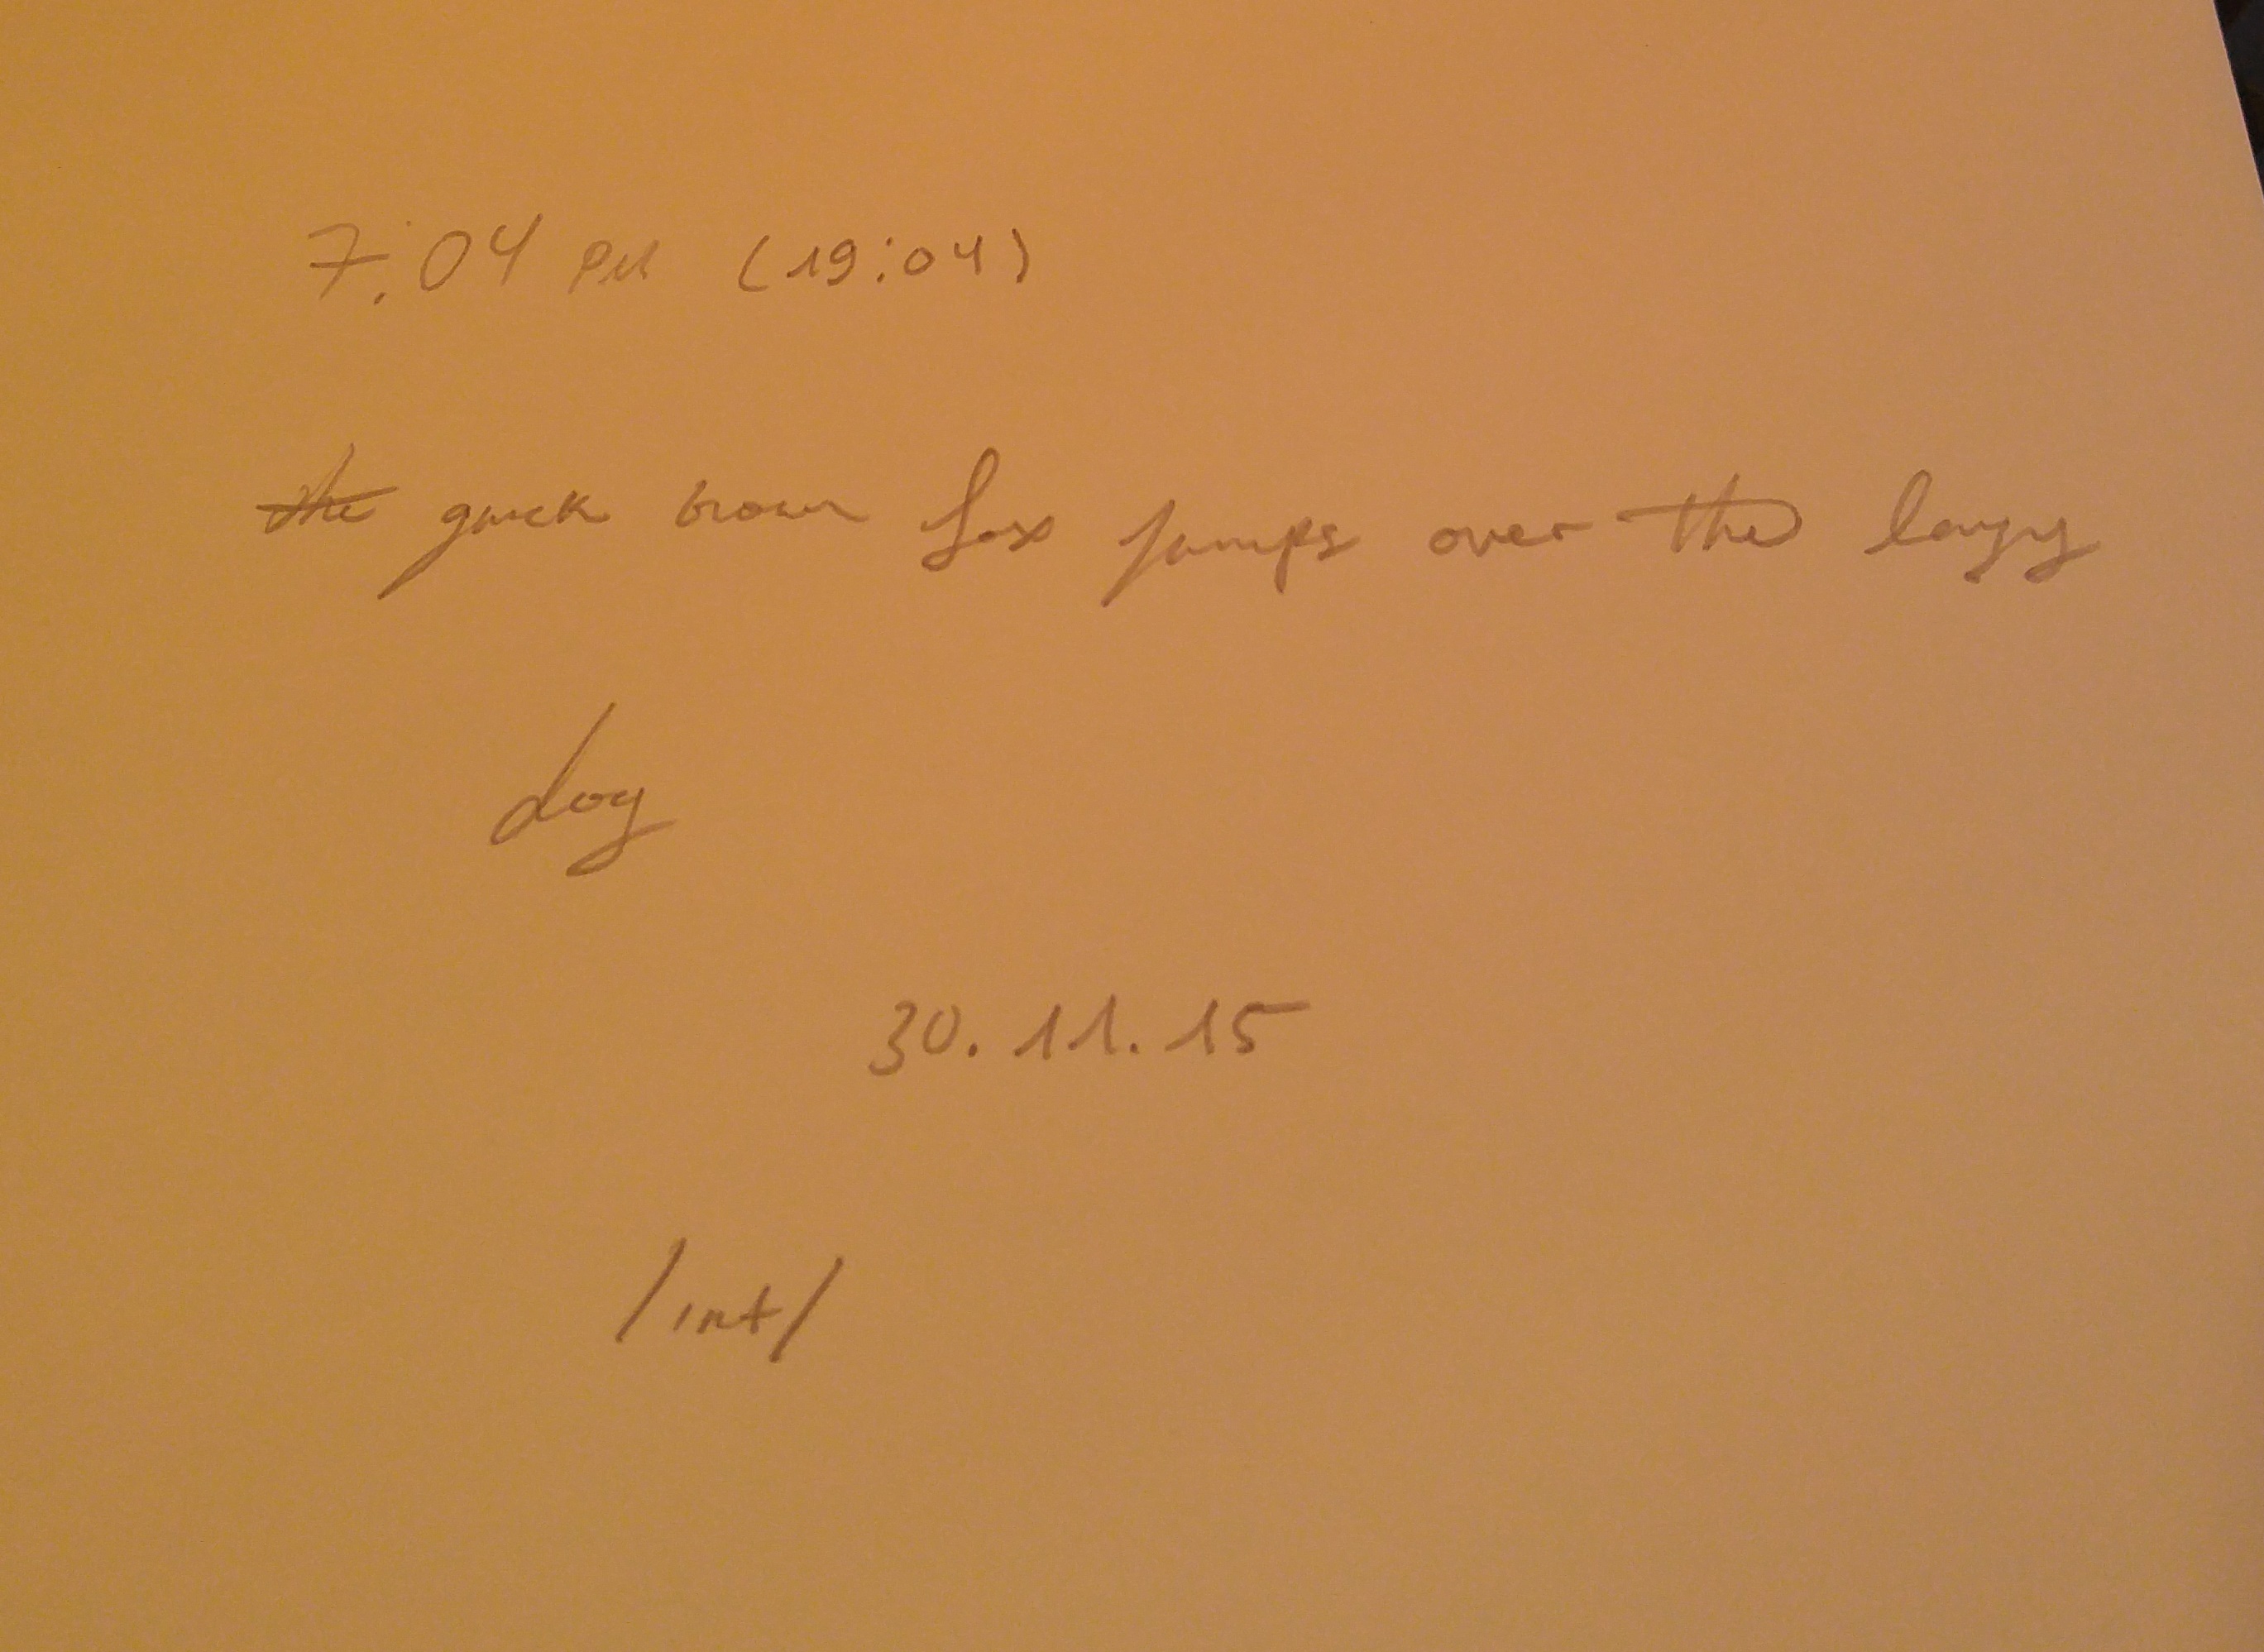 7:04 PM (19:04)
the quick brown fox jumps over the lazy
dog
30.11.15
/int/